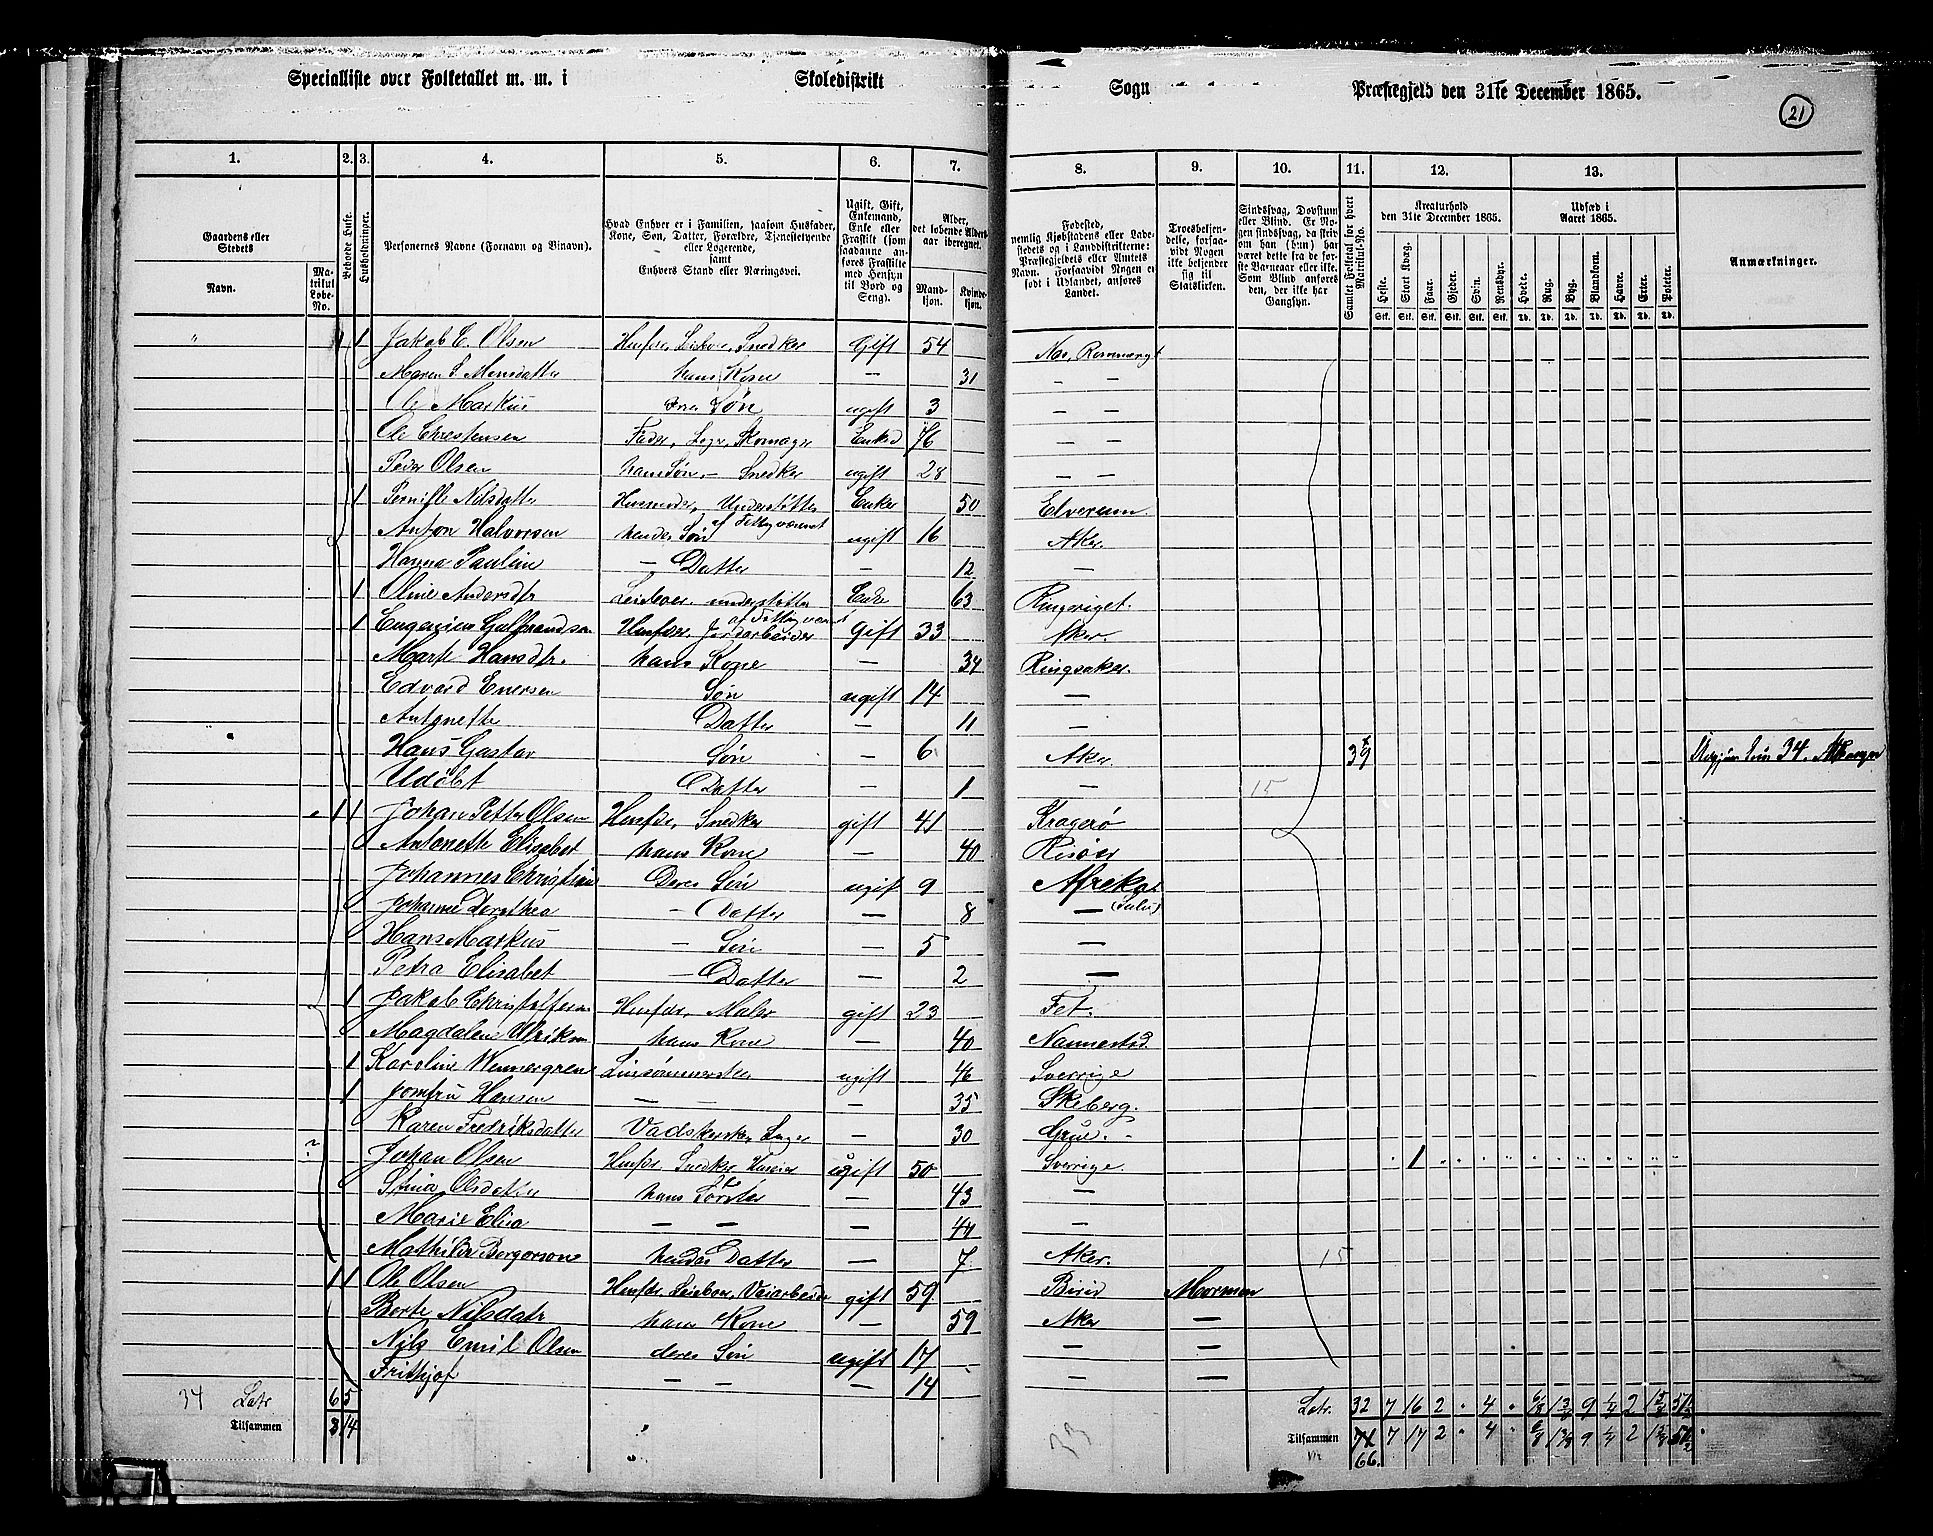 Specialliste over Folketallet m. m. i Skoledistrikt Sogn Præstegjeld den 31te December 1865.
21
1. 2. 3. 4. 5. 6. 7. 8. 9. 10. 11. 12. 13.
Gaardens eller Stedets Navn.
Matrikul Løbe-No.
Beboede Huse.
Husholdninger.
Personernes Navne (Fornavn og Tilnavn).
Hvad Enhver er i Familien, saasom Husfader, Kone, Søn, Datter, Forældre, Tjenestetyende eller Logerende, samt Enhvers Stand eller Næringsvei.
Ugift, Gift, Enkemand, Enke eller Fraskilt (som saadanne anføres Fraskilte med Hensyn til Bord og Seng).
Alder, det løbende Aldersaar iberegnet.
Mandkjøn. Kvindekjøn.
Fødested, nemlig Kjøbstadens eller Ladestedets og i Landdistrikterne: Præstegjeldets eller Amtets Navn. Forsaavidt Nogen er født i Udlandet, anføres Landet.
Troesbekjendelse, forsaavidt Nogen ikke bekjender sig til Statskirken.
Sindssvag, Døvstum eller Blind. Er Nogen sindssvag, da skriv om han (hun) har været dette fra de første Barneaar eller ikke. Som Blind anføres den, der ikke har Gangsyn.
Samlet Folketal for hvert Matrikul-No.
Kreaturhold den 31te December 1865.
Heste. Stort Kvæg. Faar. Gjeder. Svin. Rensdyr.
Udsæd i Aaret 1865.
Hvede. Rug. Byg. Blandkorn. Havre. Erter. Poteter.
Anmærkninger.
Stk. Stk. Stk. Stk. Stk. Stk. Td. Td. Td. Td. Td. Td. Td.
" 1 Jakob C. Olsen Husfdr, Leiebor, Snedker Gift 54 Nes, Romeriget
Maren S. Monsdatter hans Kone — 31 — —
Ole Markus Søn ugift 3 — —
Ole Christensen Fader, Logr, Skomager Enkem 76 — —
Peder Olsen hans Søn, — Snedker ugift 28 — —
1 Pernille Nilsdatter Husmoder, Understøttes af Fattigvæsenet Enke 50 Elverum
Anton Halvorsen hendes Søn ugift 16 Aker.
Hanna Paulin — Datter — 12 —
1 Oline Andersdtr Leiebor. understøttes af Fattigvæsenet Enke 63 Ringeriget.
1 Gulbrandsen Husfdr, Jordarbeider Gift 33 Aker.
Marte Hansdtr. hans Kone — 34 Ringsaker.
Edvard Enersen Søn ugift 14 —
Antonette Datter — 11 —
Hans Gustav Søn — 6 Aker 39 34
Udøbt Datter — 1 — 15
1 1 Johan Petter Olsen Husfdr, Snedker gift 41 Kragerø
Antonette Elisabet hans Kone — 40 Risøer
Johannes Christian Deres Søn ugift 9 Afrika
Johanne Dorothea — Datter — 8 — (Sulu)
Hans Markus — Søn — 5 —
Petra Elisabet — Datter — 2 —
1 Jakob Christoffersen Husfdr, Maler gift 23 Fet.
Magdalene Ulriksen hans Kone — 40 Nannestad
1 Karoline Wennergren Linsømmerske ugift 46 Sverrige
1 Jomfru Hansen — — 35 Skeberg.
Karen Fredriksdatter Vadskerske, Loger — 30 Grue.
Johan Olsen Husfdr, Snedker, Huseier ugift 50 Sverrige. 1
Stina Olsdatter hans Søster — 43 —
Marie Elisa — — — 44 —
Mathilde Borgerson hendes Datter — 7 Aker. 15
1 1 Ole Olsen Husfdr, Leiebor, Veiarbeider gift 59 Birid Mormon
Berte Nilsdatr hans Kone — 59 Aker —
Nils Emil Olsen deres Søn ugift 17 — —
Frithjof — — — 14 — —
34 Latr. 6 5 Latr. 32 7 16 2 " 4 "
Tilsammen 8 14 33 Tilsammen 71 7 17 2 " 4
66.